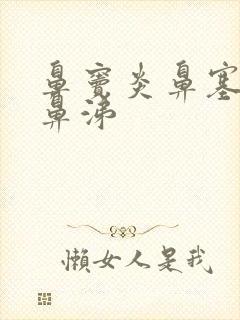 鼻窦炎鼻塞
鼻涕
懒女人是我